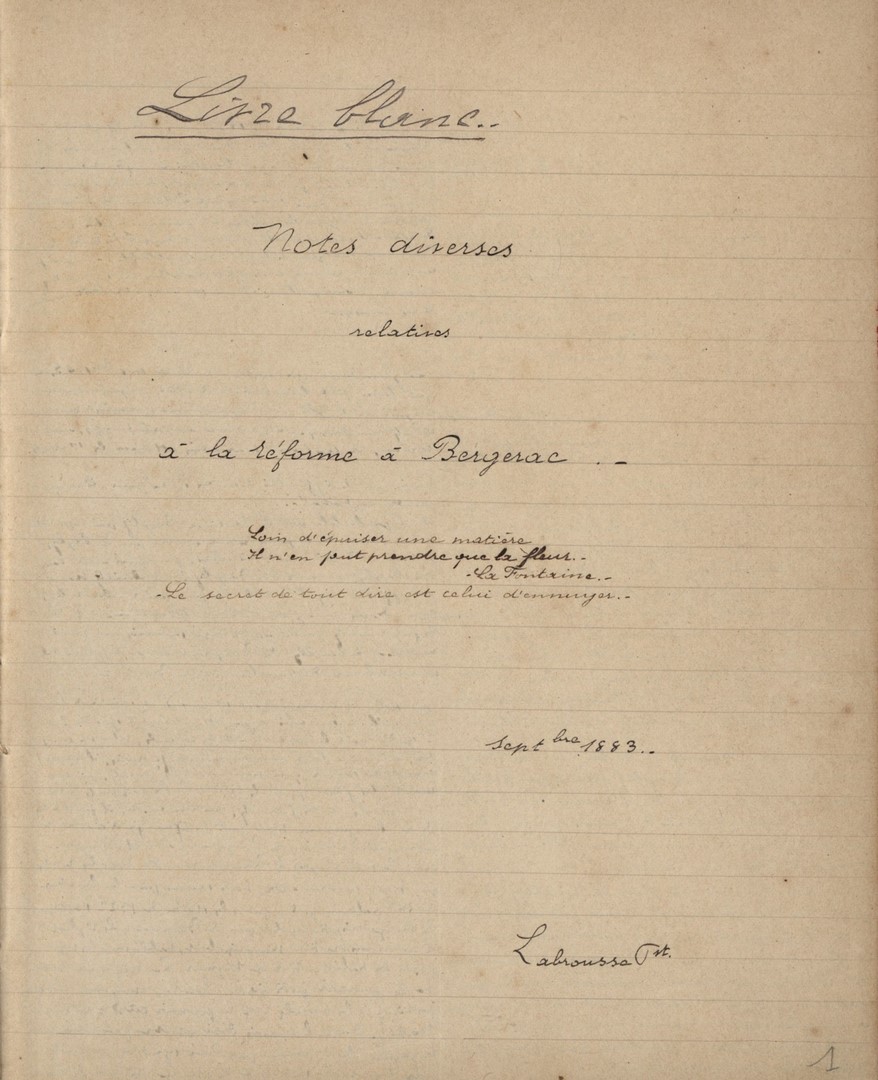 Livre blanc..
Notes diverses
relatives
à la réforme à Bergerac . -
Loin d'épuiser une matière
Il n'en faut prendre que la fleur.-
- La Fontaine.-
- Le secret de tout dire est celui d'ennuyer.-
Sept bre 1883..
Labrousse Pst.
1